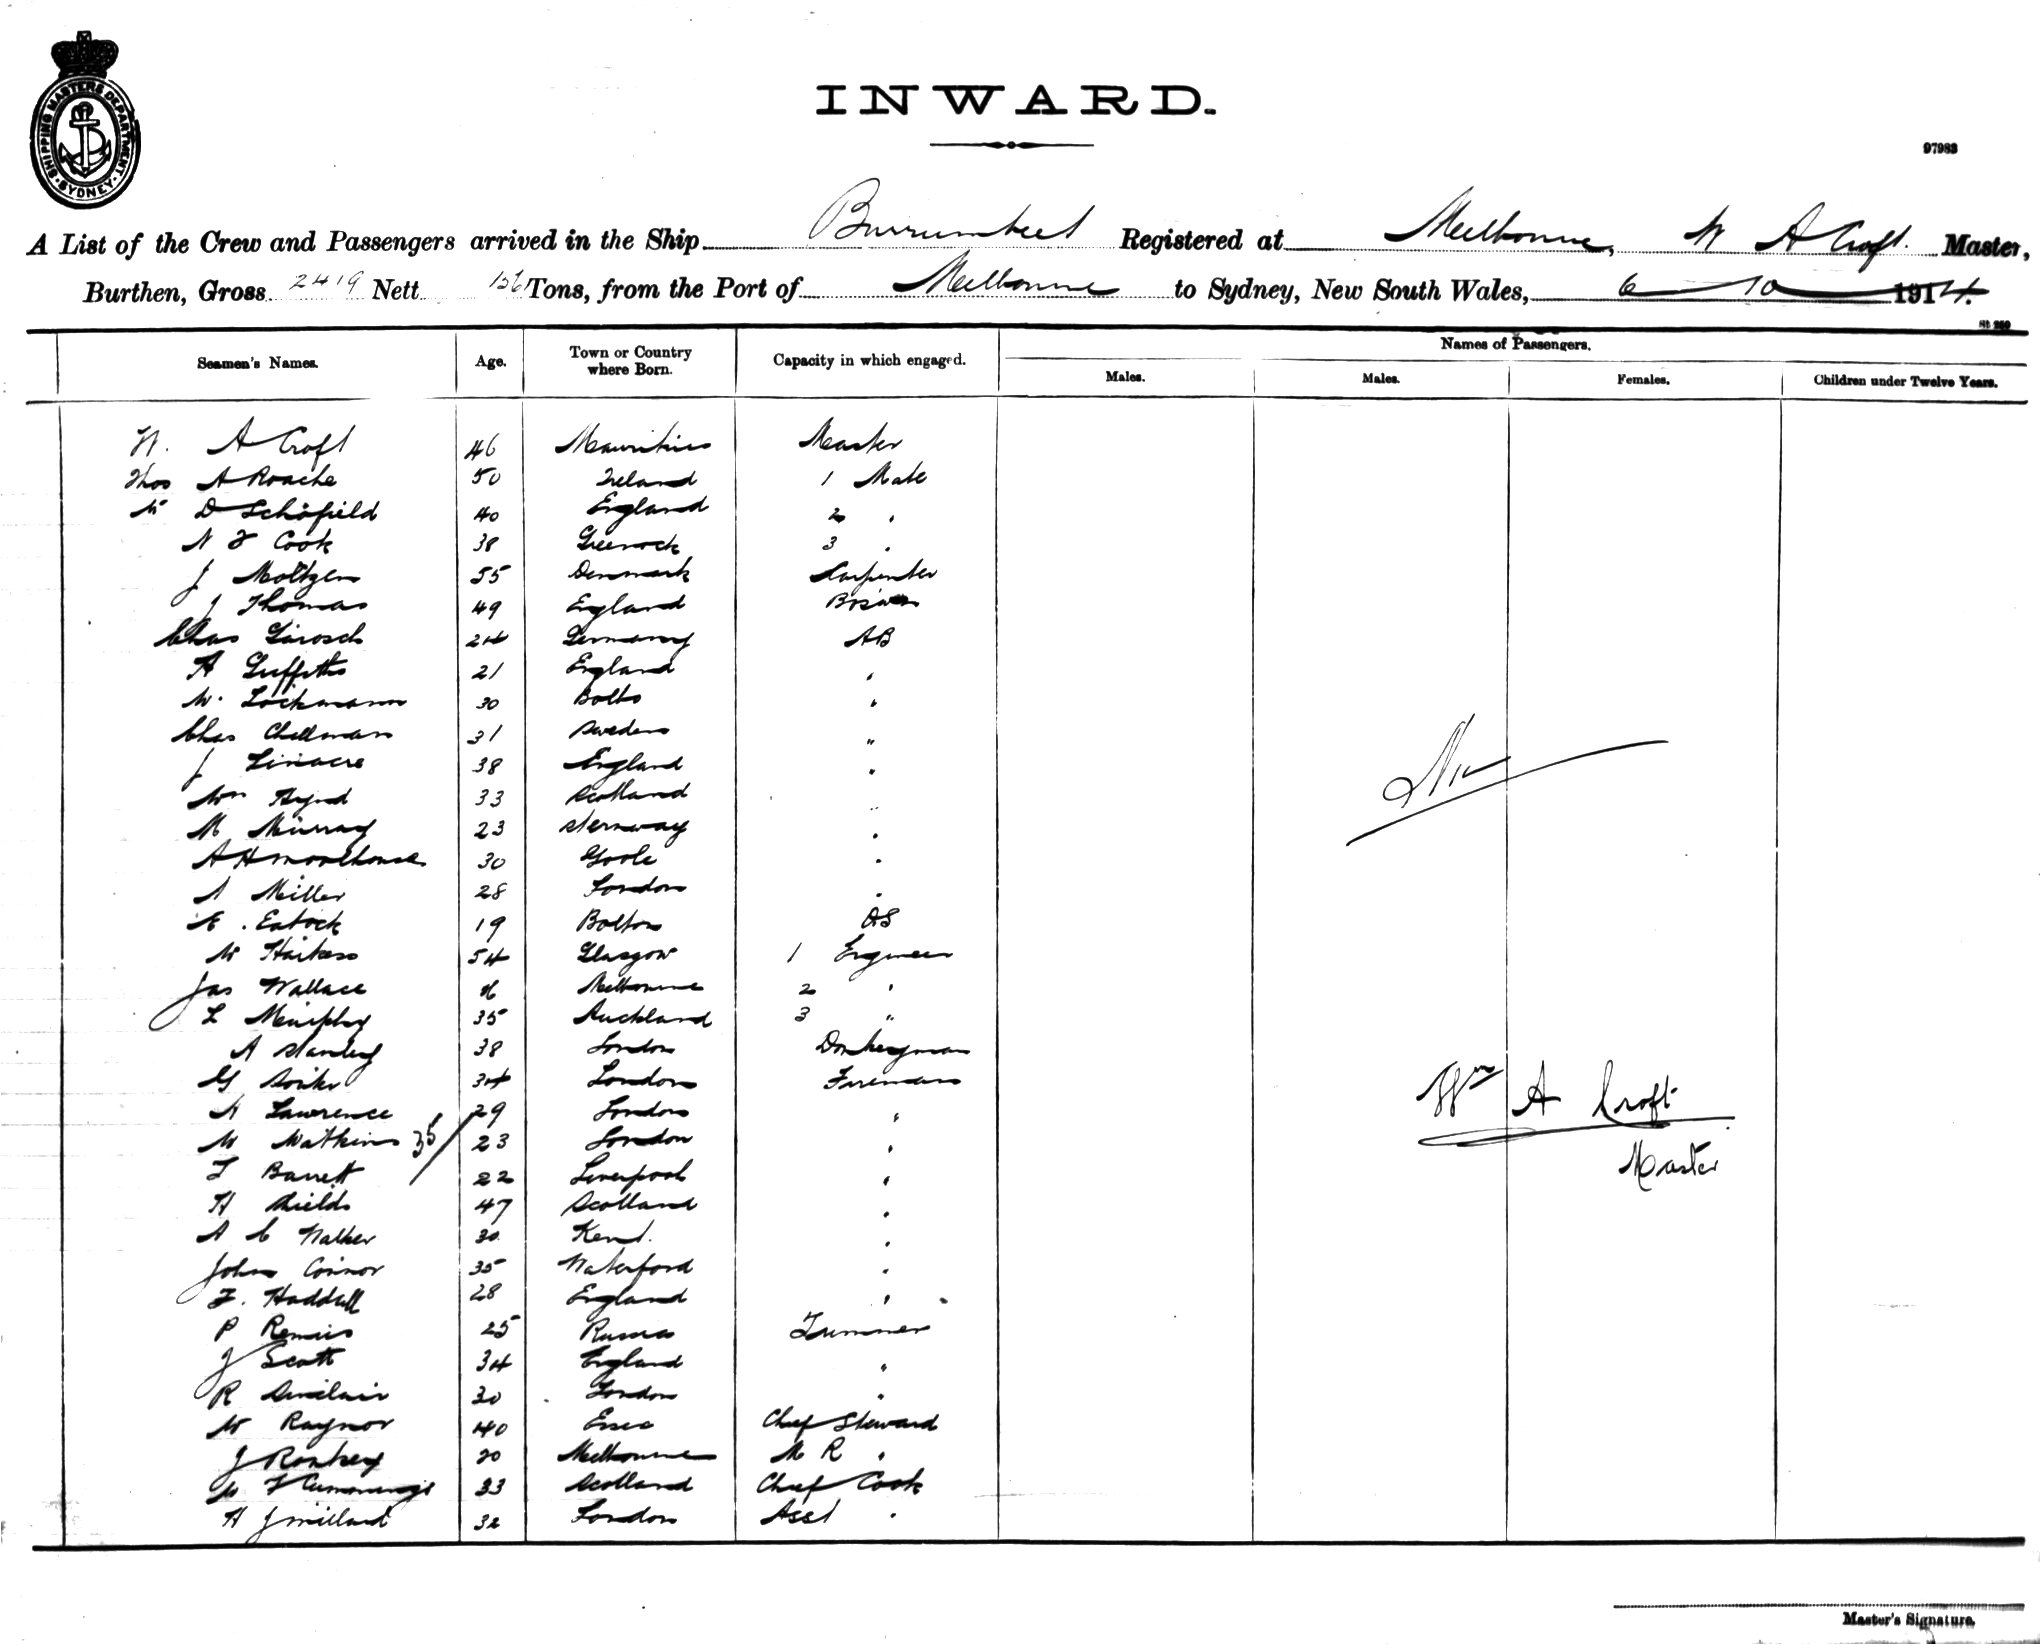 SHIPPING MASTERS DEPARTMENT. SYDNEY.
INWARD.
97983
A List of the Crew and Passengers arrived in the Ship Burrumbeet Registered at Melbourne, W A Croft. Master,
Burthen, Gross 2419 Nett Tons, from the Port of Melbourne to Sydney, New South Wales, 6 10 1914.
Seamen's Names. Age. Town or Country where Born. Capacity in which engaged. Names of Passengers.
Males. Males. Females. Children under Twelve Years.
W. A Croft 46 Mauritius Master
Thos A Roache 50 Ireland 1 Mate
W D Schofield 40 England 2 "
N F Cook 38 Greenock 3 "
J Moltzen 55 Denmark Carpenter
J Thomas 49 England Bosun
Chas Girosch 24 Germany AB
A Griffiths 21 England "
W. Lockmann 30 "
Chas Chellman 31 Sweden "
J Linacre 38 England "
Wm Hynd 33 Scotland "
M Murray 23 Stornway "
A H Moorhouse 30 Goole "
A Miller 28 London "
E. Eatock 19 Bolton OS
W Harkess 54 Glasgow 1 Engineer
Jas Wallace Melbourne 2 "
L Murphy 35 Auckland 3 "
A Stanley 38 London Donkeyman
G 34 London Fireman
A Lawrence 29 London "
W Watkins 35/ 23 London "
T Barrett 22 Liverpool "
H Shields 47 Scotland "
A C Walker 30 Kent. "
John Connor 35 Waterford "
F. Haddell 28 England "
P Remiis 25 Russia Trimmer
J Scott 34 England "
R Sinclair 30 London "
W Raynor 40 Essex Chief Steward
J Rankey 20 Melbourne M R "
W F Cummings 33 Scotland Chief Cook
H J Millard 32 London Asst "
Nil
Wm A Croft
Master
Master's Signature.